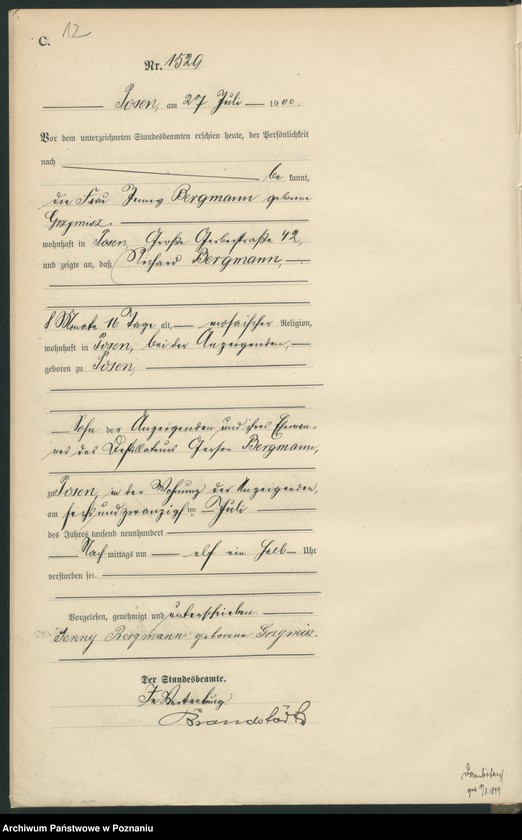 C.
12
Nr. 1529
Posen, am 27 Juli 1900.
Vor dem unterzeichneten Standesbeamten erschien heute, der Persönlichkeit
nach be kannt,
die Frau Jenny Bergmann geborene
Grzymisz
wohnhaft in Posen, Große Gerberstraße 42,
und zeigte an, daß Richard Bergmann,
8 Monate 16 Tage alt, mosaischer Religion,
wohnhaft in Posen, bei der Anzeigenden,
geboren zu Posen,
Sohn der Anzeigenden und ihres Eheman-
nes des Destillateurs Gerson Bergmann,
zu Posen, in der Wohnung der Anzeigenden,
am sechsundzwanzigsten Juli
des Jahres tausend neunhundert
Nach mittags um elf ein halb Uhr
verstorben sei.
Vorgelesen, genehmigt und unterschrieben.
Jenny Bergmann geborene Grzymisz.
Der Standesbeamte.
In Vertretung
Brandstädt
Archiwum Państwowe w Poznaniu